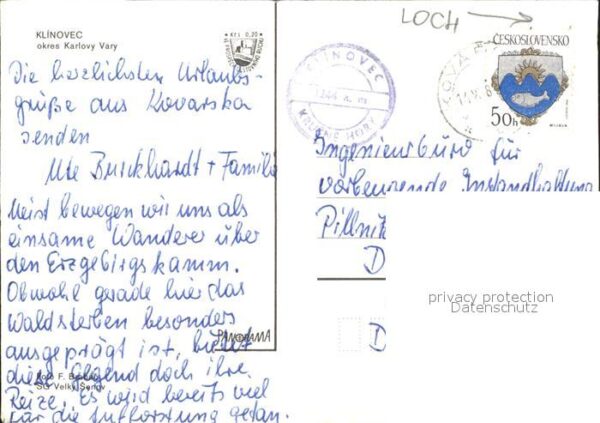 KLÍNOVEC
okres Karlovy Vary
Kčs 0,20
Die herzlichsten Urlaubs-
grüße aus Kovarska
senden
Ute Burckhardt + Familie
Meist bewegen wir uns als
einsame Wanderer über
den Erzgebirgskamm.
Obwohl gerade hier das
Waldsterben besonders
ausgeprägt ist, bietet
diese Gegend doch ihre
Reize. Es wird bereits viel
für die Aufforstung getan.
Foto F.
SG Velký Šenov
PANORAMA
KLÍNOVEC
1244 m
KRUŠNÉ HORY
LOCH
ČESKOSLOVENSKO
50h
Ingenieurbüro für
vorbeugende Instandhaltung
Pillnitz
D
D
privacy protection
Datenschutz